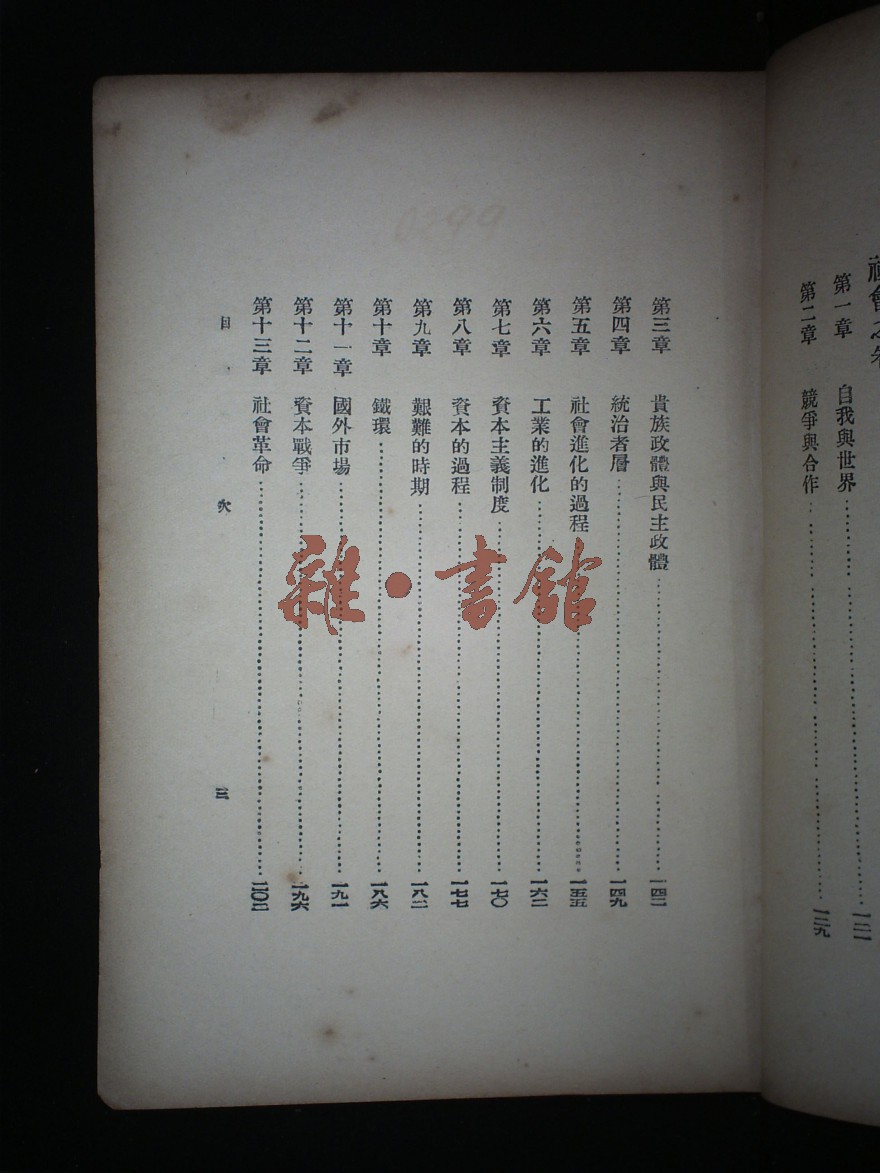 社會之卷
第一章 自我與世界 一二一
第二章 競爭與合作 一二九
第三章 貴族政體與民主政體 一四二
第四章 統治者層 一四九
第五章 社會進化的過程 一五五
第六章 工業的進化 一六二
第七章 資本主義制度 一七〇
第八章 資本的過程 一七七
第九章 艱難的時期 一八二
第十章 鐵環 一八六
第十一章 國外市場 一九一
第十二章 資本戰爭 一九六
第十三章 社會革命 二〇二
目次 三
0399
雜·書館